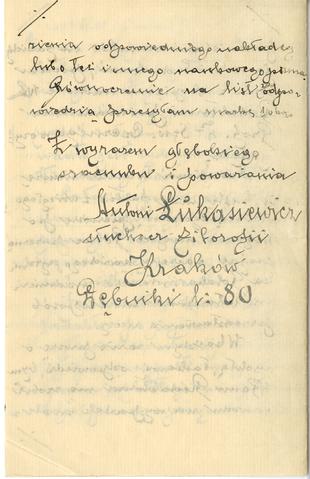 rzenia odpowiedniego nakładcy
lub o też innego naukowego pisma
Równocześnie na list odpo-
wiedzią przesyłam markę
Z wyrazem głębokiego
szacunku i poważania
Antoni Łukasiewicz
słuchacz filozofii
Kraków
Dębniki l: 80